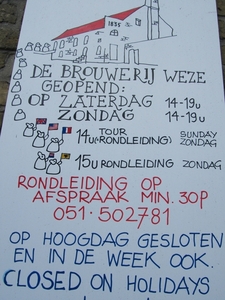 1835
DE BROUWERIJ WEZE
GEOPEND:
OP ZATERDAG 14-19u
ZONDAG 14-19u
14u TOUR SUNDAY
(RONDLEIDING) ZONDAG
15u RONDLEIDING ZONDAG
RONDLEIDING OP
AFSPRAAK MIN. 30P
051·502781
OP HOOGDAG GESLOTEN
EN IN DE WEEK OOK.
CLOSED ON HOLIDAYS